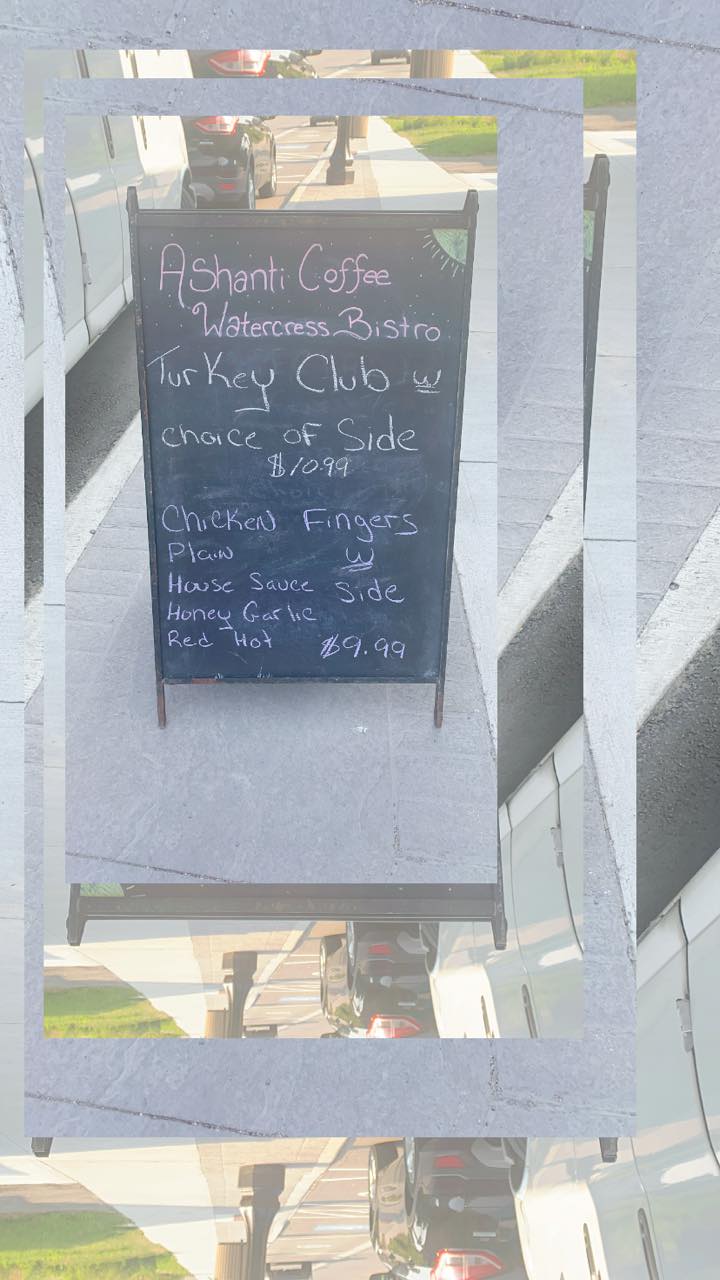 AShanti Coffee
Watercress Bistro
Turkey Club w
choice of Side
$10.99
Chicken Fingers
Plain w
House Sauce Side
Honey Garlic
Red Hot $9.99